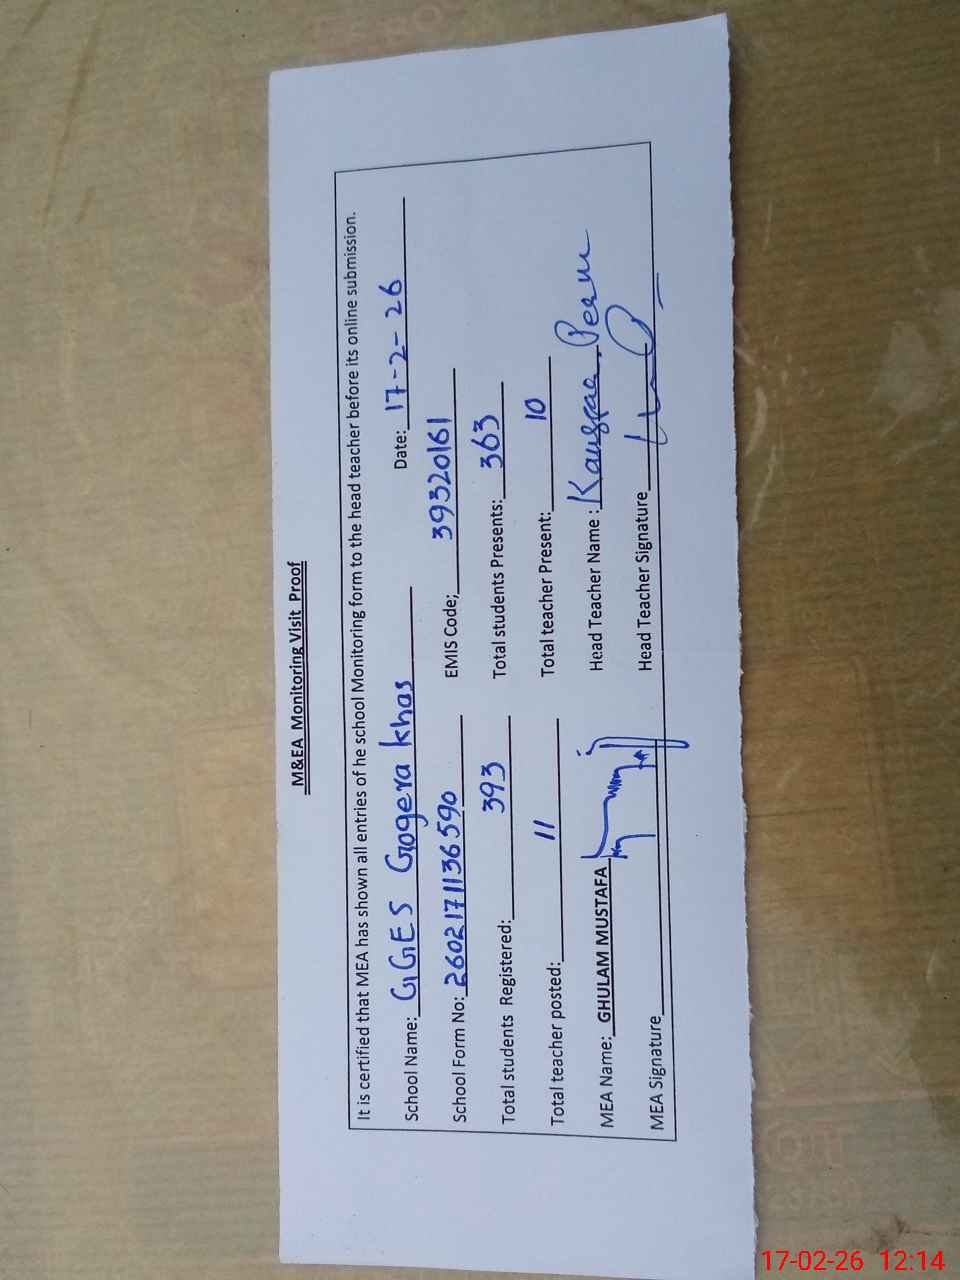 M&EA Monitoring Visit Proof
It is certified that MEA has shown all entries of he school Monitoring form to the head teacher before its online submission.
School Name: GGES Gogera khas Date: 17-2-26
School Form No: 2602171136590 EMIS Code; 39320161
Total students Registered: 393 Total students Presents: 363
Total teacher posted: 11 Total teacher Present: 10
MEA Name: GHULAM MUSTAFA Head Teacher Name :
MEA Signature Head Teacher Signature
17-02-26 12:14